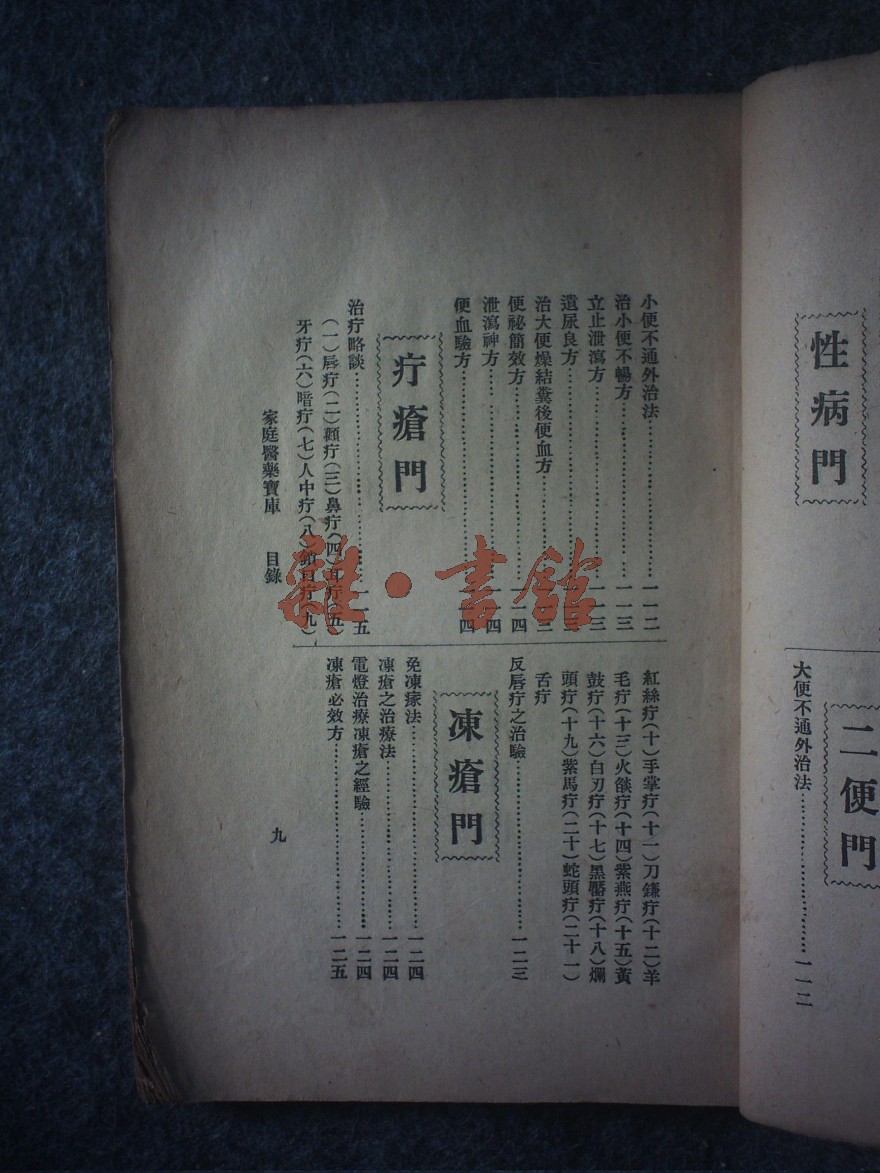 性病門
二便門
大便不通外治法……一一二
小便不通外治法……一一二
治小便不暢方……一一三
立止泄瀉方……一一三
遺尿良方……一一三
治大便燥結糞後便血方……一一三
便祕簡效方……一一四
泄瀉神方……一一四
便血驗方……一一四
疔瘡門
治疔略談……一一五
(一)唇疔(二)顴疔(三)鼻疔(四)耳疔(五)
牙疔(六)暗疔(七)人中疔(八)鎖口疔(九)
紅絲疔(十)手掌疔(十一)刀鐮疔(十二)羊
毛疔(十三)火燄疔(十四)紫燕疔(十五)黃
鼓疔(十六)白刃疔(十七)黑靨疔(十八)爛
頭疔(十九)紫馬疔(二十)蛇頭疔(二十一)
舌疔
反唇疔之治驗……一二三
凍瘡門
免凍瘃法……一二四
凍瘡之治療法……一二四
電燈治療凍瘡之經驗……一二四
凍瘡必效方……一二五
家庭醫藥寶庫 目錄
九
雜·書館